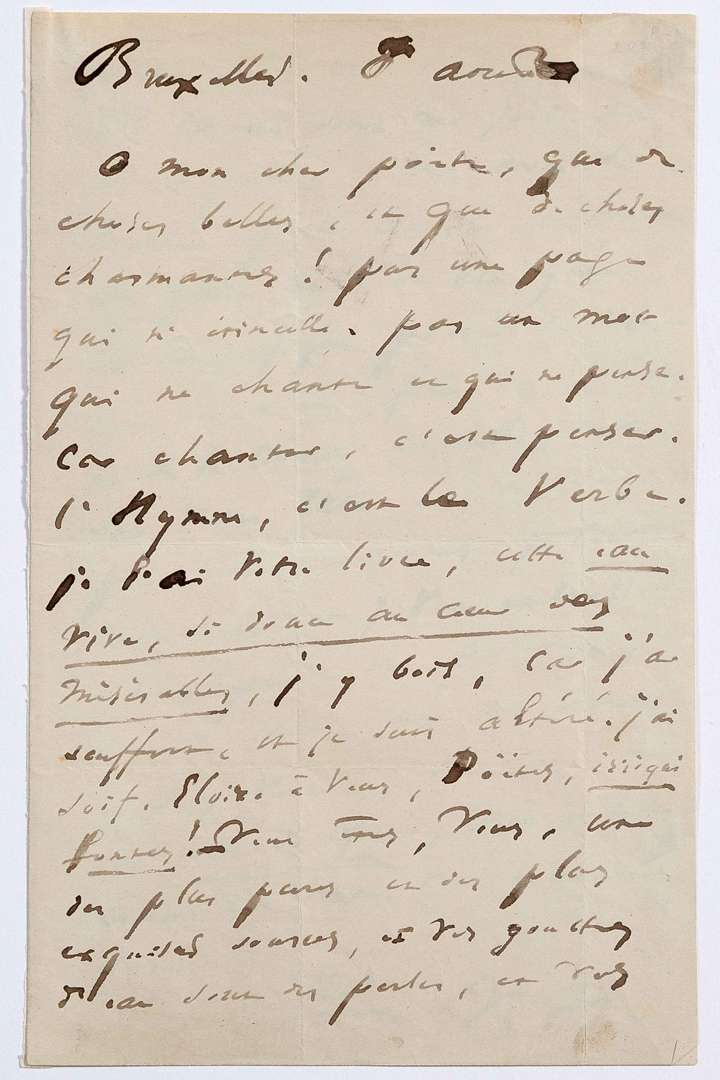 Bruxelles. août
O mon cher poëte, que de
choses belles, et que de choses
charmantes ! pas une page
qui n'étincelle. pas un mot
qui ne chante et qui ne pense.
car chanter, c'est penser.
l'Hymne, c'est le Verbe.
je l'ai votre livre, cette eau
vive, si douce au cœur des
misérables, j'y bois, car j'ai
souffert, et je suis altéré. j'ai
soif. Gloire à vous, Poëtes,
fontes ! Vous êtes, vous, une
des plus pures et des plus
exquises sources, et vos gouttes
d'eau sont des perles, et vos